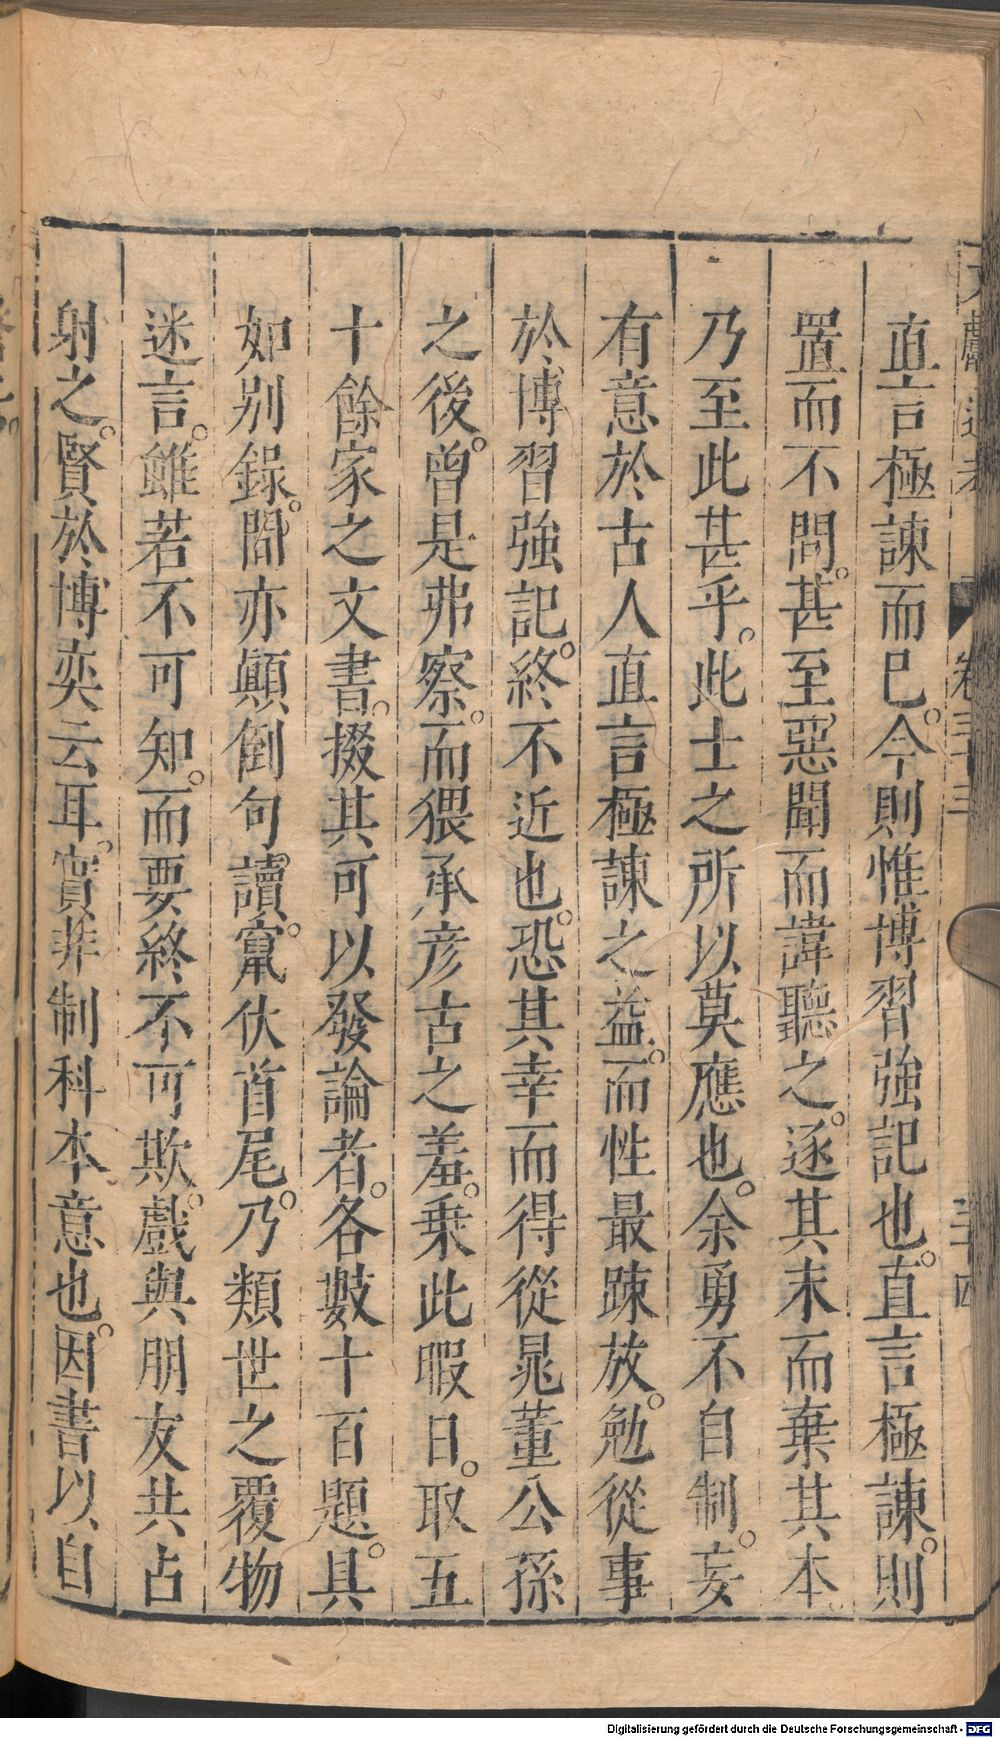 文獻通考 卷三十三 三十四
直言極諫而已。今則惟博習強記也。直言極諫。則
置而不問。甚至惡聞而諱聽之。逐其末而棄其本
乃至此甚乎。此士之所以莫應也。余勇不自制。妄
有意於古人直言極諫之益。而性最踈放。勉從事
於博習強記。終不近也。恐其幸而得從晁董公孫
之後。曾是弗察。而猥承彥古之羞。乗此暇日。取五
十餘家之文書。掇其可以發論者。各數十百題。具
如别錄。間亦顚倒句讀。竄伏首尾。乃類世之覆物
迷言。雖若不可知。而要終不可欺。戲與朋友共占
射之。賢於博奕云耳。實非制科本意也。因書以自
Digitalisierung gefördert durch die Deutsche Forschungsgemeinschaft - DFG